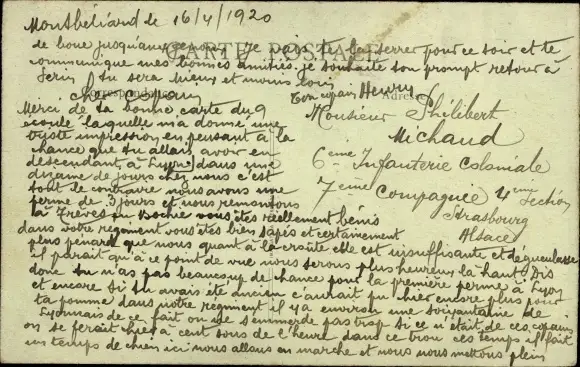 Montbéliard le 16/4/1920
de boue jusqu'aux genoux je vais te la serrer pour ce soir et te
CARTE POSTALE
communique mes bonnes amitiés, je souhaite ton prompt retour à
tu sera mieux et moins loin
Ton copain Henry
Correspondance
Adresse
Cher Copain
Merci de ta bonne carte du 9
écoulé laquelle m'a donné une
triste impression en pensant à la
chance que tu allais avoir en
descendant à Lyon dans une
dizaine de jours chez nous c'est
tout le contraire nous avons une
perme de 3 jours et nous remontons
à Trèves en Bochie vous êtes réellement bénis
Monsieur Philibert
Michaud
6ème Infanterie Coloniale
7ème Compagnie 4ème Section
Strasbourg
Alsace
dans votre regiment vous êtes bien sapés et certainement
plus pénard que nous quant à la croûte elle est insuffisante et dégueulasse
il parait qu'à ce point de vue nous serons plus heureux là haut. Dis
donc tu n'as pas beaucoup de chance pour la première perme à Lyon
et encore si tu avais été ancien c'aurait pu chier encore plus pour
ta pomme dans notre régiment il y a environ une soixantaine de
Lyonnais de ce fait on ne s'emmerde pas trop si ce n'était de ces copains
on se ferait chier à cent sous de l'heure dans ce trou ces temps il fait
un temps de chien ici nous allons en marche et nous nous mettons plein